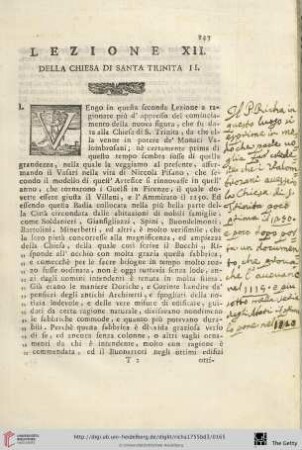 147
LEZIONE XII.
DELLA CHIESA DI SANTA TRINITA II.
I. VEngo in questa seconda Lezione a ra-
gionare più d' appresso del cominciа-
mento della nuova figura, che fu da-
ta alla Chiesa di S. Trinita, da che al-
la venne in potere de' Monaci Va-
lombrosani; nè certamente prima di
questo tempo sembra fosse di quelle
grandezze, nella quale la veggiamo al presente, affer-
mando il Vasari nella vita di Niccola Pisano, che se-
condo il modello di quest' Artefice si rinnovasse in quell'
anno, che tornarono i Guelfi in Firenze, il quale do-
vette essere giusta il Villani, e l'Ammirato il 1250. Ed
essendo questa Badia collocata nella più bella parte del-
la Città circondata dalle abitazioni di nobili famiglie,
come Soldanieri, Gianfigliazzi, Spini, Buondelmonti
Bartolini, Minerbetti, ed altri, è molto verisimile, che
la loro pietà concorresse alla magnificenza, ed ampiezza
della Chiesa, della quale così scrive il Bocchi „ Ri-
„ sponde all' occhio con molta grazia questa fabbrica,
„ e comecchè per le sacre bisogne in tempo molto roz-
„ zo fosse ordinata, non è oggi tuttavia senza lode, an-
„ zi dagli uomini intendenti è tenuta in molta stima.
„ Già erano le maniere Doriche, e Corinte bandite da'
„ pensieri degli antichi Architetti, e spogliati della no-
„ tizia lodevole, e delle vere misure di edificare, gui-
„ dati da certa ragione naturale, divisavano nondimeno
„ le fabbriche comode, e quanto più potevano durа-
„ bili. Perchè questa fabbrica è di vista graziosa verso
„ di se, ed ancora senza colonne, o altri vaghi orna-
„ menti da chi è intendente, molto con ragione è
„ commendata, ed il Buonarroti negli ultimi edifizi
T 2
Il P. Richa in
questo luogo si
la Chiesa di S.
Trinita
il 1250.
e poco dopo por-
ta un documen-
to, che
nel 1115. e più
sotto
http://digi.ub.uni-heidelberg.de/diglit/richa1755bd3/0165
© Universitätsbibliothek Heidelberg
The Getty